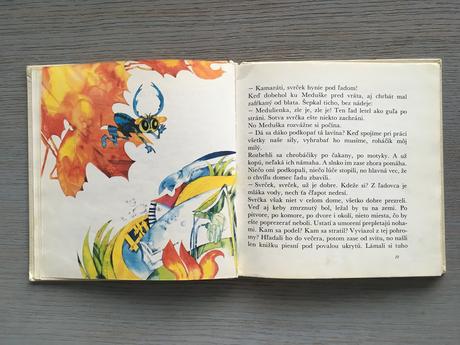 — Kamaráti, svrček hynie pod ľadom!
Keď dobehol ku Meduške pred vráta, aj chrbát mal
zafŕkaný od blata. Šepkal ticho, bez nádeje:
— Medulienka, zle je, zle je! Ten ľad letel ako guľa po
stráni. Sotva svrčka ešte niekto zachráni.
No Meduška rozvážne si počína.
— Dá sa dáko podkopať tá lavína? Keď spojíme pri práci
všetky naše sily, vyhrabať ho musíme, roháčik môj
milý.
Rozbehli sa chrobáčiky po čakany, po motyky. A už
kopú, neľaká ich námaha. A slnko im zase zhora pomáha.
Niečo oni podkopali, niečo lúče stopili, na hlavná vec, že
o chvíľu domec ľadu zbavili.
— Svrček, svrček, už je dobre. Kdeže si? Z ľadovca je
mláka vody, nech ťa čľapot nedesí.
Svrčka však niet v celom dome, všetko dobre prezreli.
Veď aj keby zmrznutý bol, ležal by tu na zemi. Po
pitvore, po komore, po dvore i okolí, nieto miesta, čo by
ešte poprezerať neboli. Ustatí a umorení prepletajú noha-
mi. Kam sa podel? Kam sa stratil? Vyviazol z tej pohro-
my? Hľadali ho do večera, potom zase od svitu, no našli
len knižku piesní pod povalou ukrytú. Lámali si tuho